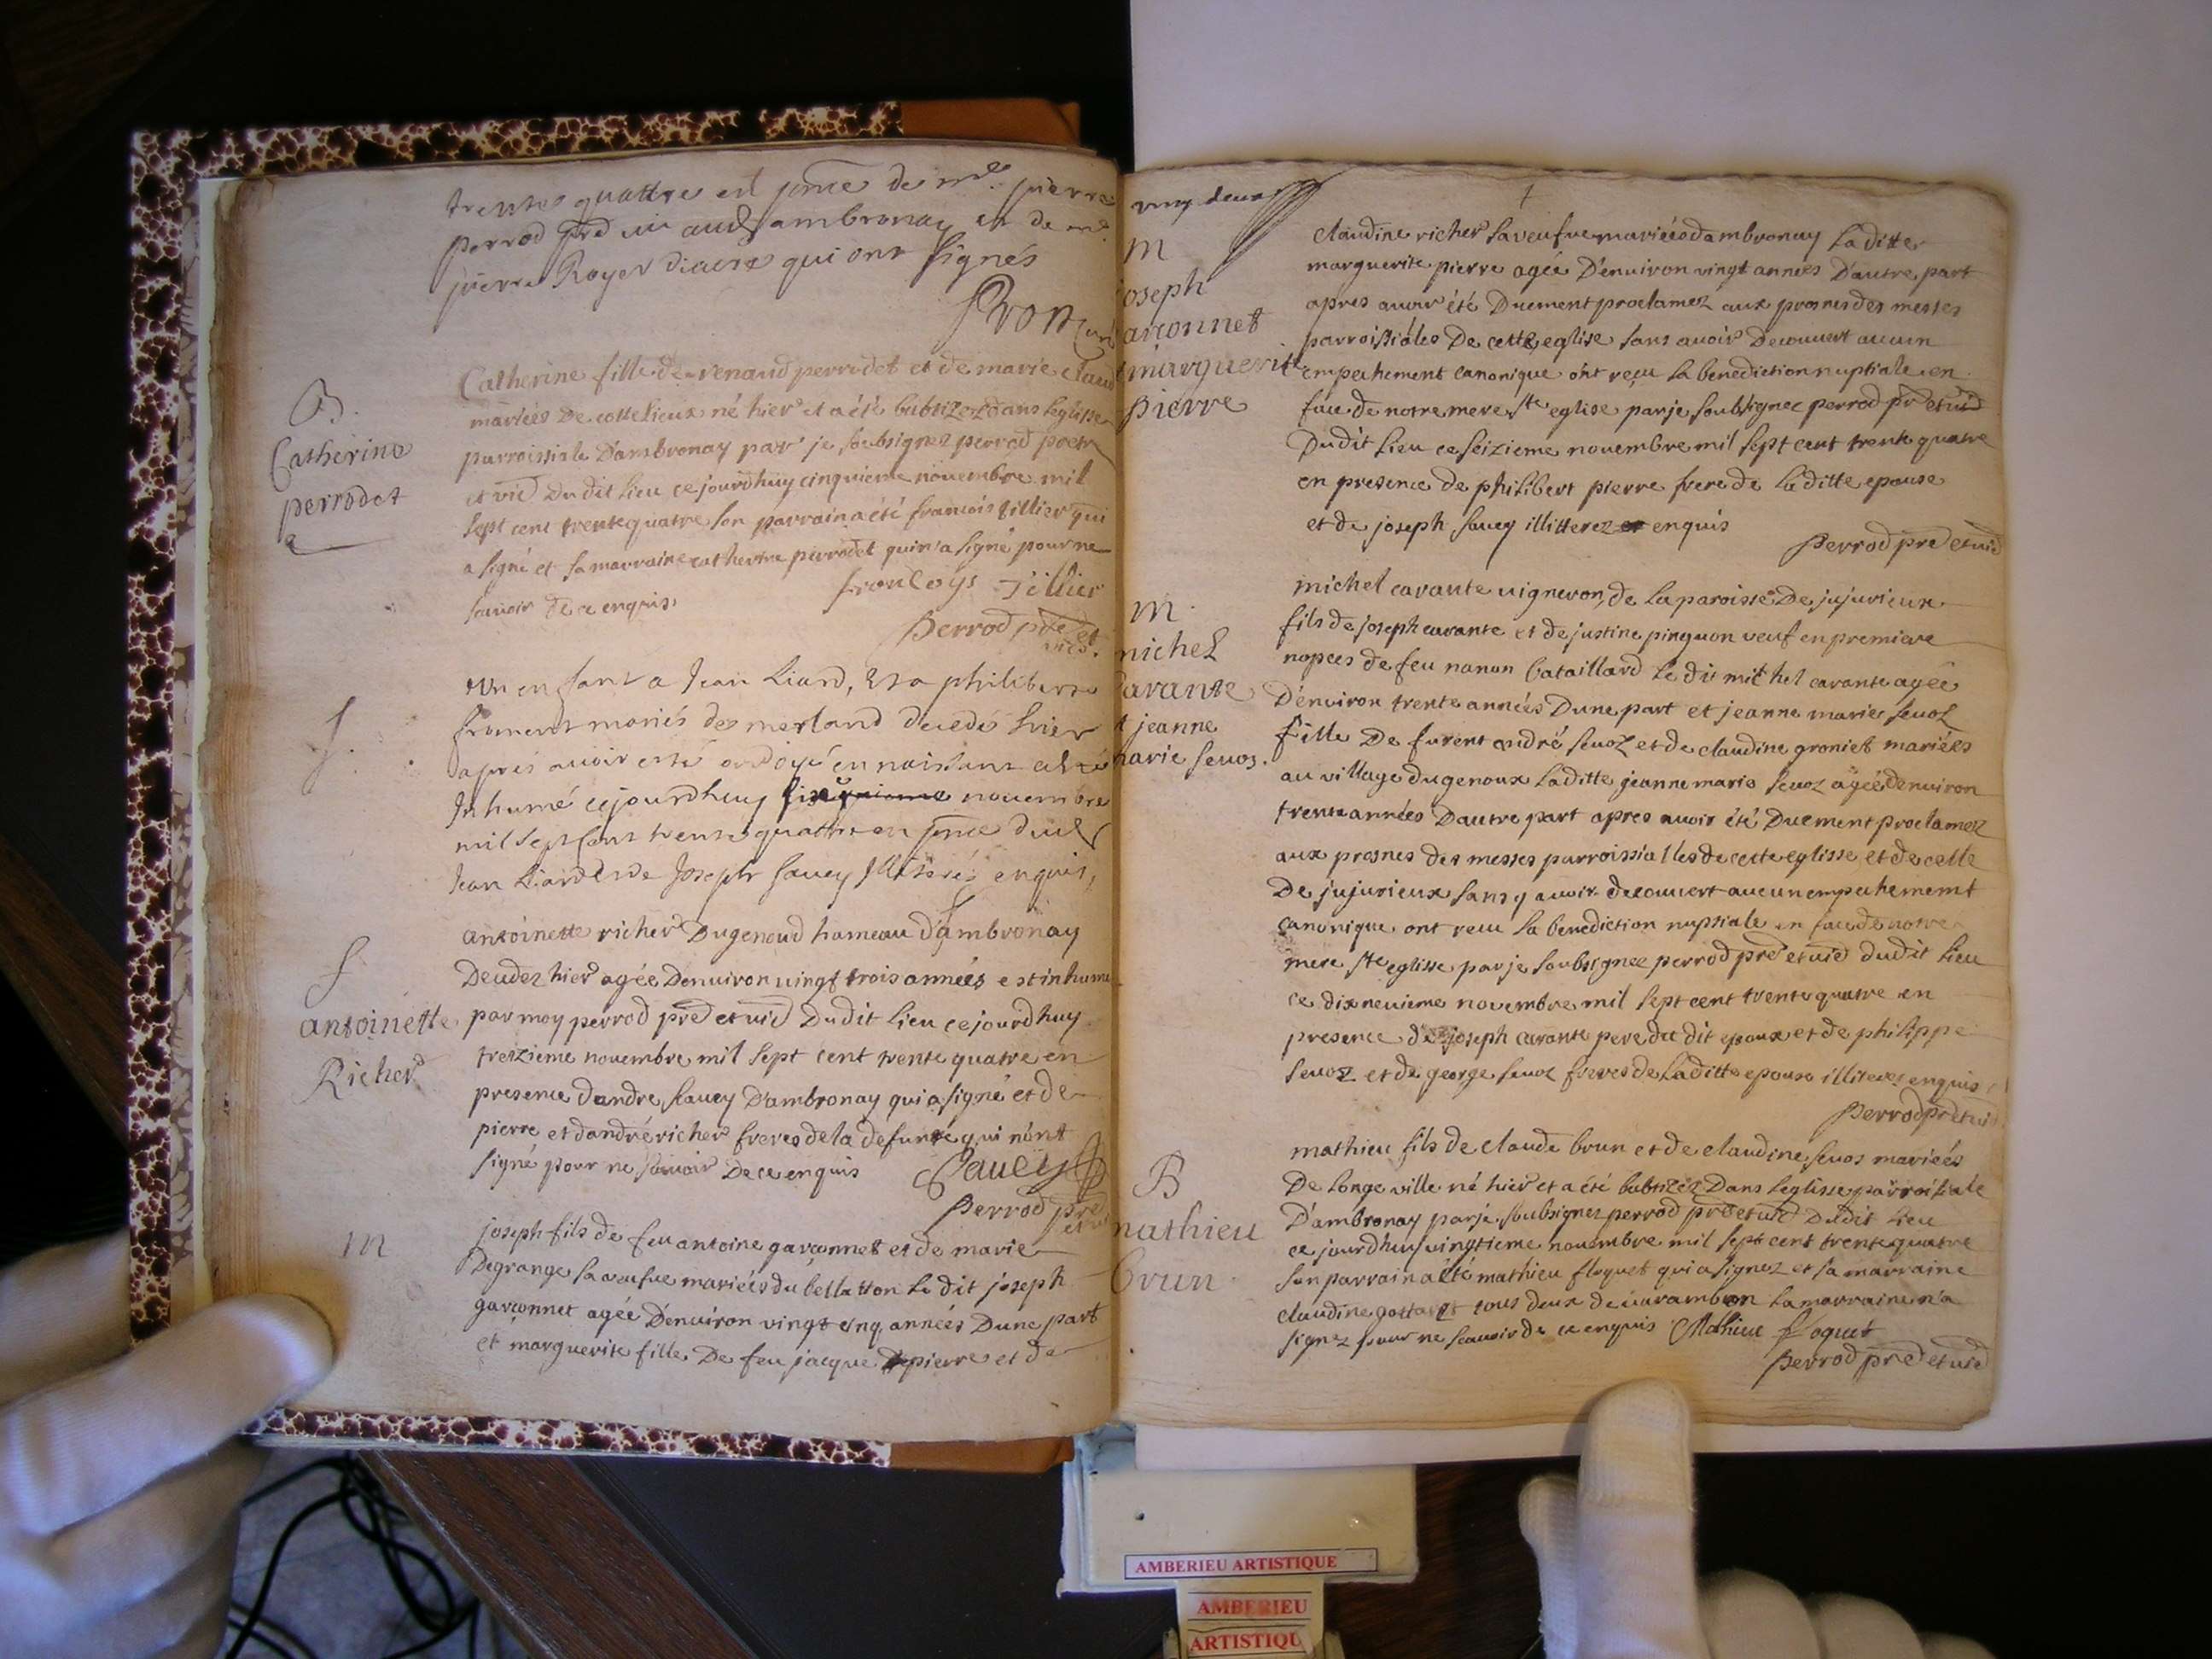 trentes quattre en pnce de mre pierre
perrod pre vic audt ambronay et de mre
pierre Royer diacre qui ont signés
Bron Curé
B.
Catherine
perrodet
Catherine fille de renaud perrodet et de marie
mariées de cotte lieux né hier et a été babtizez dans leglisse
parroissiale D'ambronay par je soubsignez perrod pretre
et vic Du dit lieu ce jourdhuy cinquieme nouembre mil
sept cent trente quatre son parrain a été francois tillier qui
a signé et sa marraine catherine perrodet qui n'a signé pour ne
sauoir de ce enquis
francoys Tillier
perrod pre et vic.
f.
Un enfant a Jean Liard, et a philiberte
froment mariés des merland decedé hier
apres auoir esté ondoyé en naissant a été
Inhumé cejourdhuy nouembre
mil sept cent trente quattre en pnce dudt
Jean Liard et de Joseph sauey Illiterés enquis,
f
antoinette
Richer
antoinette richer Dugenoud hameau d'ambronay
Decedez hier agée Denuiron vingt trois années est inhumé
par moy perrod pre et vic Dudit lieu cejourdhuy
treizieme nouembre mil sept cent trente quatre en
presence dandre sauey D'ambronay qui a signé et de
pierre et dandré richer freres de la defunte qui n'ont
signé pour ne sauoir De ce enquis Sauey
perrod pre et vic
m
joseph fils de feu antoine garconnet et de marie
Degrange sa veufue mariées du bellatton Le dit joseph
garconnet agée D'enuiron vingt cinq années Dune part
et marguerite fille De feu jacque pierre et de
vingt deux
m
joseph
garconnet
et marguerite
pierre
claudine richer sa veufue mariées d'ambronay Laditte
marguerite pierre agée D'enuiron vingt années D'autre part
apres auoir été Duement proclamez aux prosnes des messes
parroissiales De cette eglise sans auoir Decouuert aucun
empechement canonique ont reçu la benediction nuptiale en
face de notre mere ste eglise par je soubsignee perrod pre et vic
Dudit lieu ce seizieme nouembre mil sept cent trente quatre
en presence de philibert pierre frere de laditte epouse
et de joseph sauey illitterez et enquis
perrod pre et vic
m.
michel
carante
et jeanne
marie seuos.
michel carante uigneron, de la paroisse De jujurieux
fils de joseph carante et de justine pinguon veuf en premiere
nopces de feu nanon Cataillard le dit michel carante agée
D'enuiron trente années Dune part et jeanne marie seuoz
fille De furent andré seuoz et de claudine groniet mariées
au village dugenoux Laditte jeanne marie seuoz agée denuiron
trente années Dautre part apres auoir été Duement proclamez
aux prosnes des messes parroissialles de cette eglisse et de celle
De jujurieux sans y auoir decouuert aucun empechement
canonique ont receu la benediction nuptiale en face de notre
mere ste eglisse par je soubsignee perrod pre et vic dudit lieu
ce dixneuieme nouembre mil sept cent trente quatre en
presence de joseph carante pere du dit epoux et de philippe
seuoz et de george seuoz freres de laditte epouse illiterez enquis
perrod pre et vic
B
mathieu
brun
mathieu fils de claude brun et de claudine seuos mariées
De longeville né hier et a été babtizéz Dans leglisse parroissiale
D'ambronay par je soubsignez perrod pre et vic Dudit lieu
ce jourdhuy vingtieme nouembre mil sept cent trente quatre
son parrain a été mathieu floquet qui a signez et sa marraine
claudine tous deux de uarambon la marraine n'a
signez pour ne scauoir de ce enquis Mathieu floquet
perrod pre et vic
AMBERIEU ARTISTIQUE
AMBERIEU
ARTISTIQU